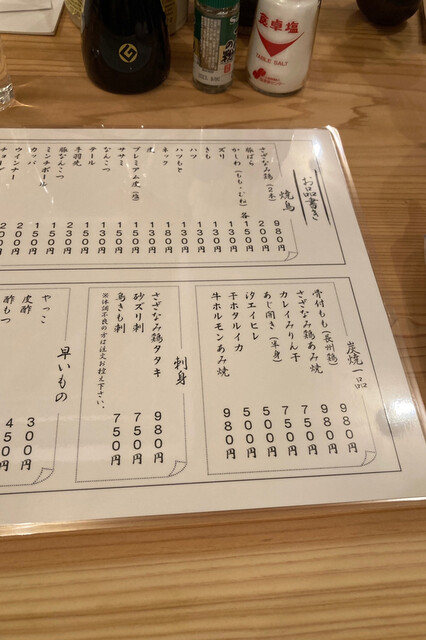 お品書き
焼鳥
さざなみ鶏(2本) 980円
豚ばら 200円
かしわ(もも・むね) 各150円
ズリ 130円
きも 130円
ハツ 130円
ハツもと 130円
ネック 180円
皮 130円
プレミアム皮(塩) 150円
ササミ 150円
なんこつ 150円
テール 150円
手羽先 230円
豚なんこつ 150円
ミンチボール 150円
ウッパ
ウインナー
炭焼一品
骨付もも(長州鶏) 980円
さざなみ鶏あみ焼 980円
カレイみりん干 750円
あじ開き(半身) 500円
汐エイヒレ 500円
干ホタルイカ 500円
牛ホルモンあみ焼 980円
刺身
さざなみ鶏タタキ 980円
砂ズリ刺 750円
鳥きも刺 750円
※体調不良の方は注文お控え下さい。
早いもの
やっこ 300円
皮酢 450円
酢もつ
食卓塩
TABLE SALT